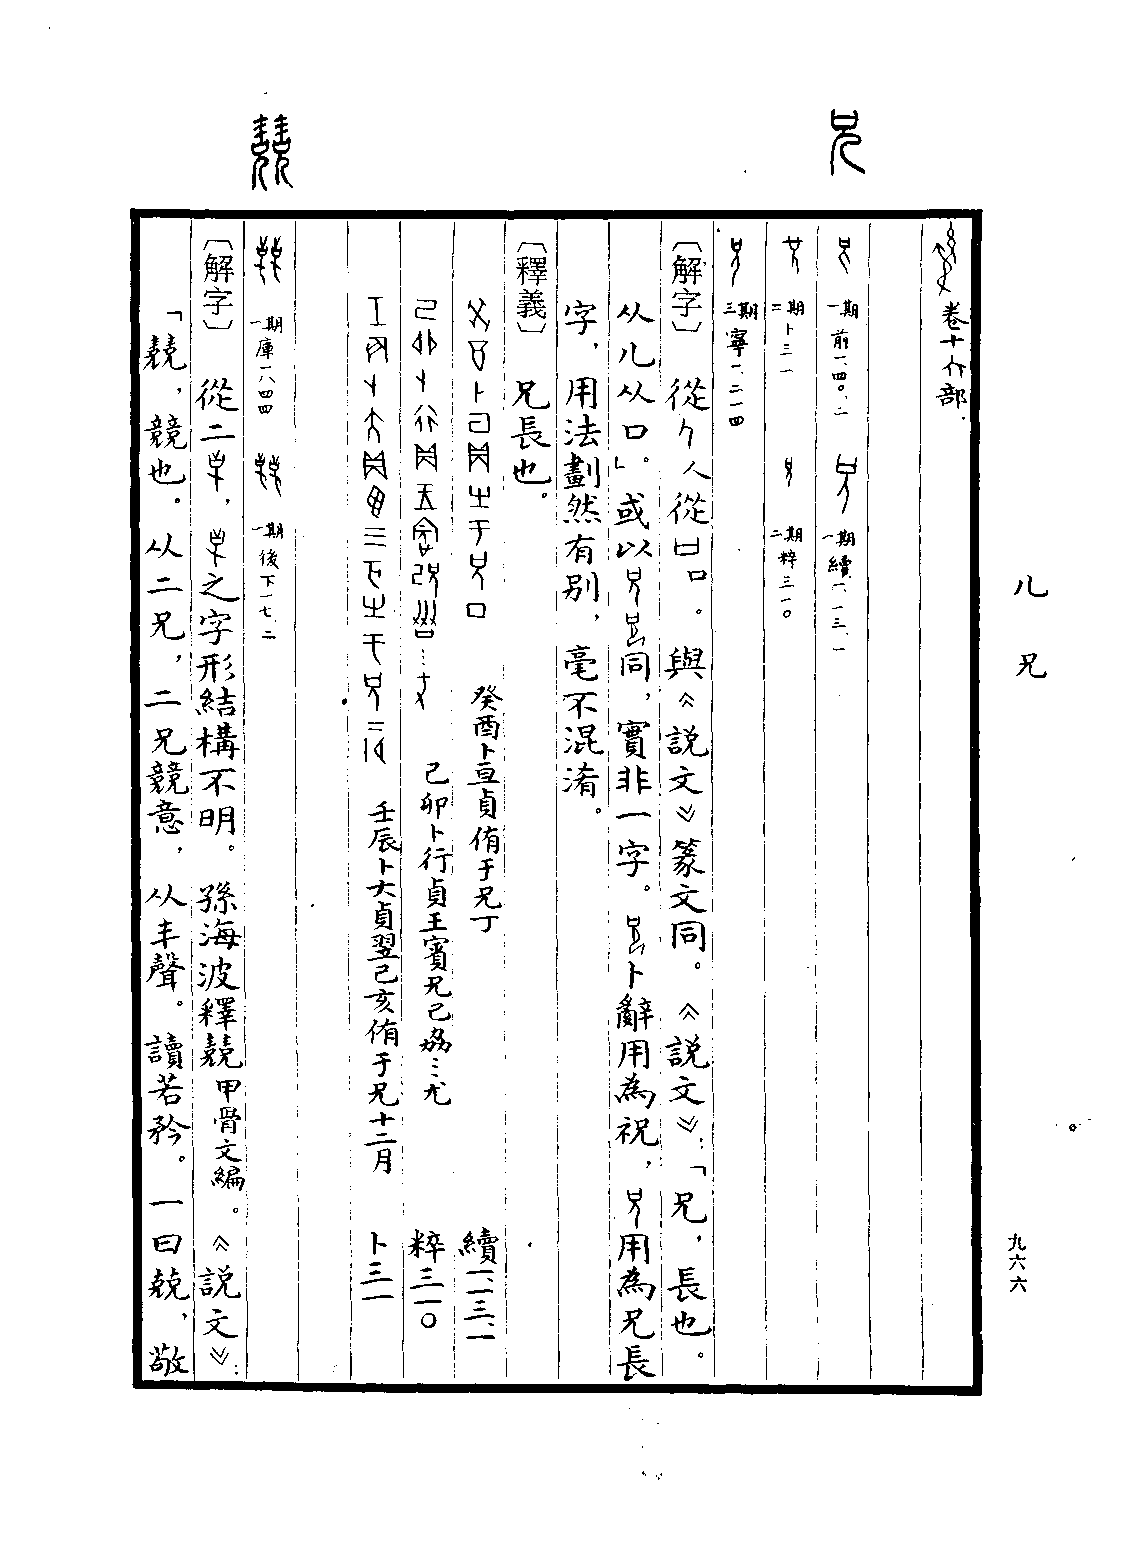 儿 兄
九六六
兄
一期 前一、四〇、二 一期 續一、一三、一
二期 卜三一 二期 粹三一〇
三期 寧一、二一四
〔解字〕 從人從口。與《説文》篆文同。《説文》：「兄，長也。
从儿从口。」或以同，實非一字。卜辭用為祝，用為兄長
字，用法劃然有別，毫不混淆。
〔釋義〕 兄長也。
癸酉卜亘貞侑于兄丁 續一、一三、一
己卯卜行貞王賓兄己劦…尤 粹三一〇
壬辰卜大貞翌己亥侑于兄十二月 卜三一
兢
一期 庫一八四四 一期 後下一七、二
〔解字〕 從二，之字形結構不明。孫海波釋兢甲骨文編。《説文》：
「兢，競也。从二兄，二兄競意，从丰聲。讀若矜。一曰兢，敬